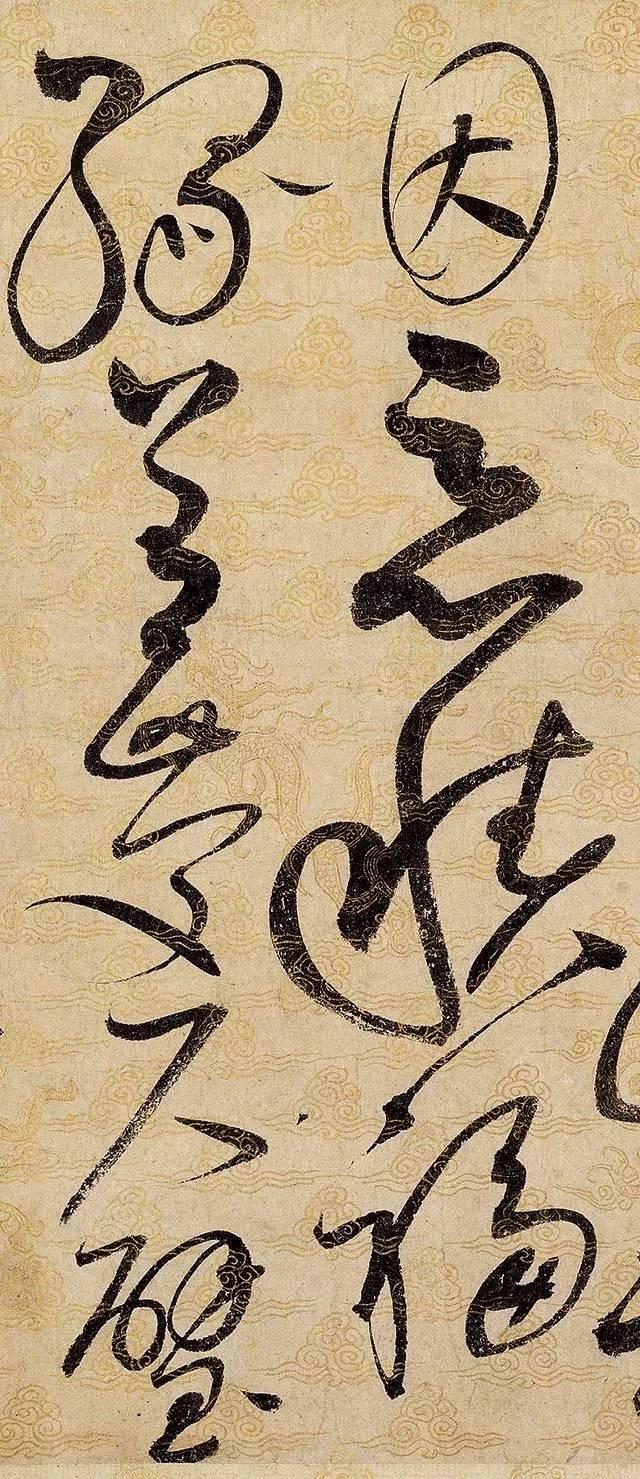 因惡積福
緣善慶尺璧